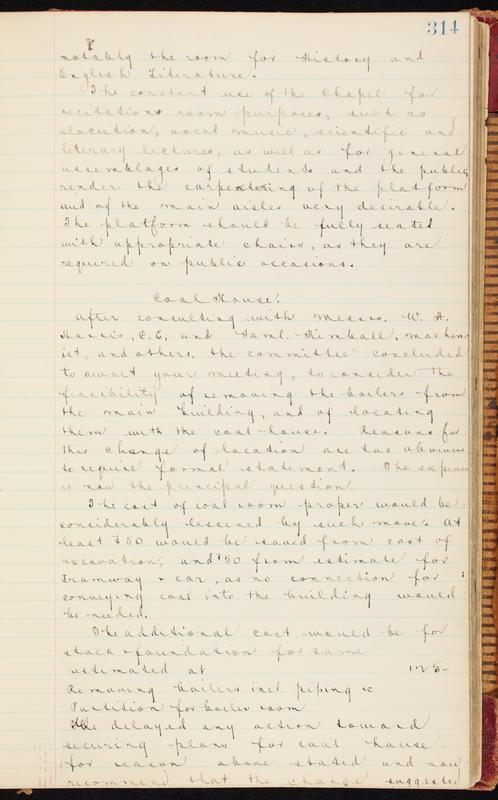 314
notably the room for History and
English Literature.
The constant use of the Chapel for
recitations room purposes, such as
elocution, vocal music, scientific and
literary lectures, as well as for general
assemblages of students and the public,
render the carpeting of the platform
and of the main aisles very desirable.
The platform should be fully seated
with appropriate chairs, as they are
required on public occasions.
Coal House.
After consulting with Messrs. W. H.
C.E. and Saml. Kimball, machin
ist, and others, the committee concluded
to await your meeting, to consider the
feasibility of removing the boilers from
the main building, and of locating
them with the coal-house. Reasons for
this change of location are too obvious
to require formal statement. The expense
is now the principal question.
The cost of coal room proper would be
considerably lessened by such move. At
least $50 would be saved from cost of
excavation, and $50 from estimate for
tramway & car, as no connection for
conveying coal into the building would
be needed.
The additional cost would be for
stack & foundation for same
estimated at 125-
Removing boilers incl. piping &c
Partition for boiler room
We delayed any action toward
securing plans for coal house
for reason above stated and now
recommend that the change suggested